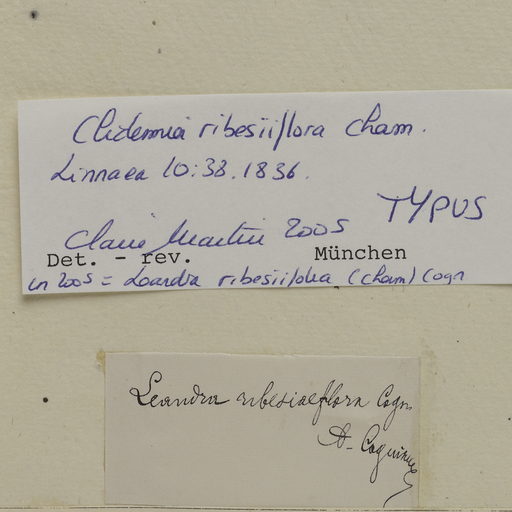 Clidemia ribesiiflora Cham.
Linnaea 10:38.1836.
TYPUS
Claire Martin 2005
Det. - rev. München
in 2005 = Leandra ribesiiflora (Cham) Cogn
Leandra ribesiaeflora Cogn
A. Cogniaux